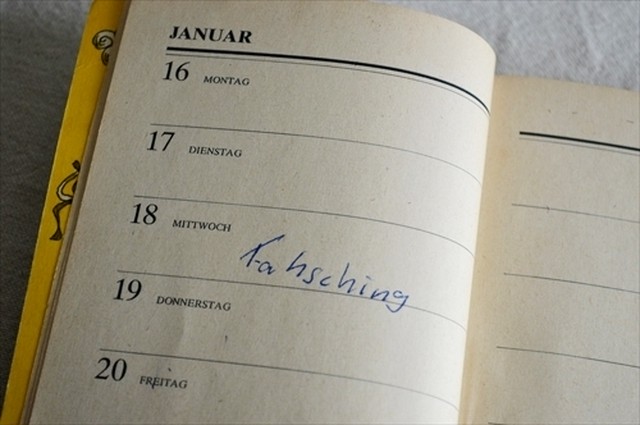 JANUAR
16 MONTAG
17 DIENSTAG
18 MITTWOCH
Fahsching
19 DONNERSTAG
20 FREITAG